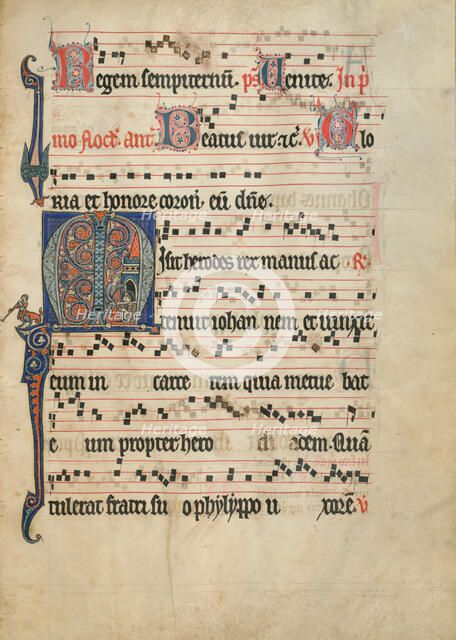 Regem sempiternũ. ps̃ Venite. In p
mo noct̃. ant̃. Beatus uir. ⁊c̃. V̄ Glo
ria et honore coron. eũ dñe.
Misit herodes rex manus ac R̃.
tenuit iohan nem. et uinxit
eum in carce rem quia metue bat
e um propter hero di adem. Quã
tulerat fratri su o phylyppo u xorẽ. V̄
heritage
Heritage
Heritage
Heritage
Heritage
Heritage